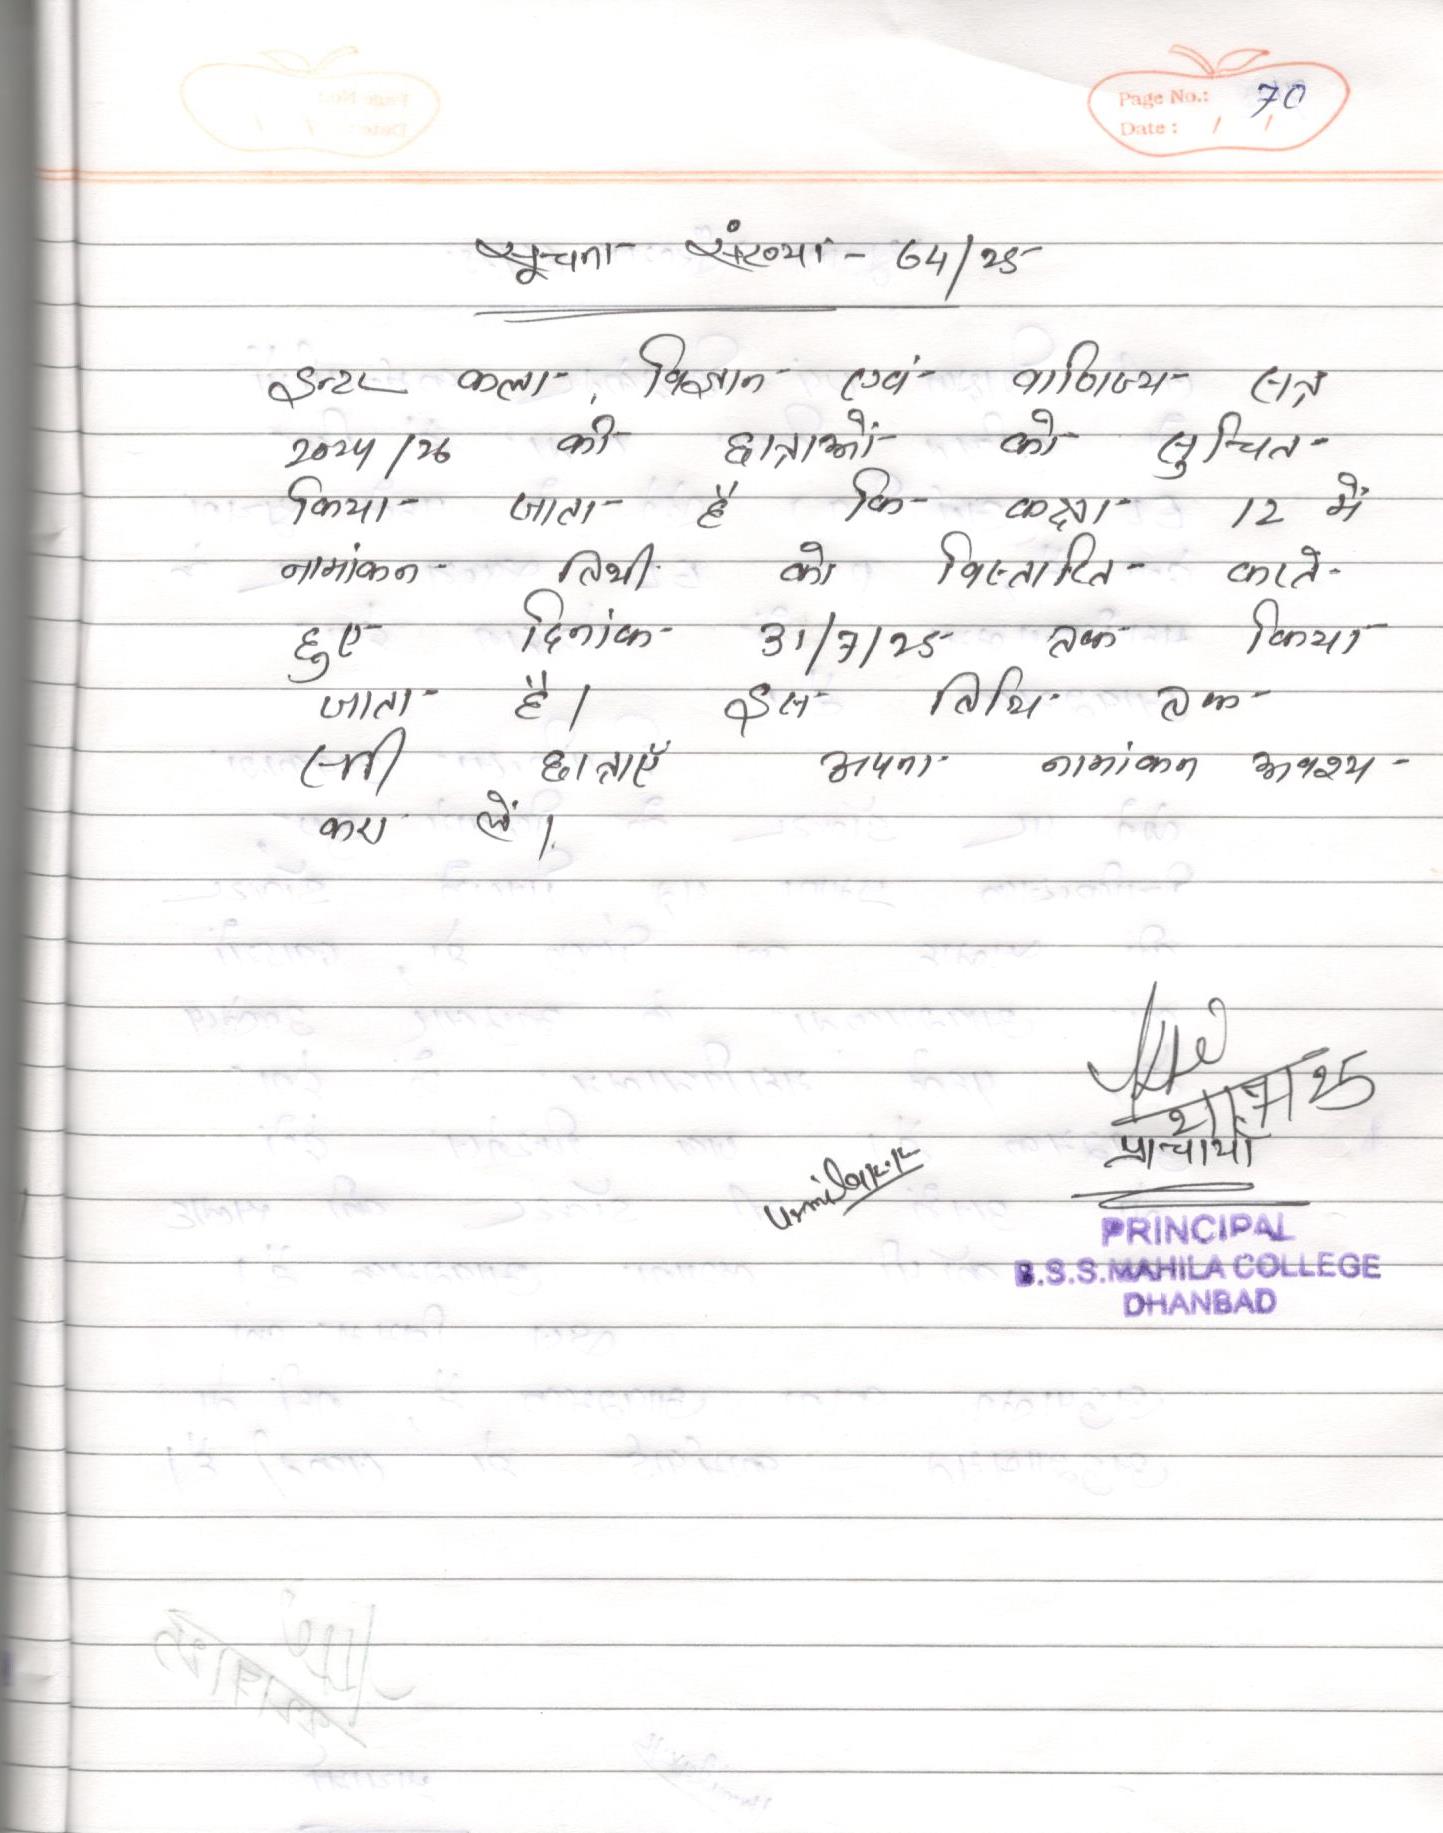 Page No.: 70
Date : / /
सूचना संख्या - 64/25
इन्टर कला, विज्ञान एवं वाणिज्य सत्र
2024/26 की छात्राओं को सुचित
किया जाता है कि कक्षा 12 में
नामांकन तिथी को विस्तारित करते
हुए दिनांक 31/7/25 तक किया
जाता है। इस तिथि तक
सभी छात्राएँ अपना नामांकन अवश्य
करा लें।
21/7/25
प्राचार्या
Urmila K.K
PRINCIPAL
B.S.S.MAHILA COLLEGE
DHANBAD